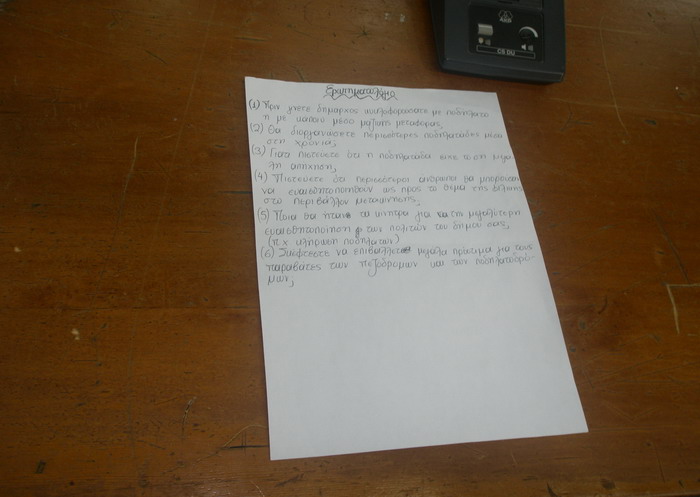 AKG
CS DU
Ερωτηματολόγιο
(1) Πριν γίνετε δήμαρχος κυκλοφορούσατε με ποδήλατο
ή με κάποιο μέσο μαζικής μεταφοράς;
(2) Θα διοργανώσετε περισσότερες ποδηλατάδες μέσα
στη χρονιά;
(3) Γιατί πιστεύετε ότι η ποδηλατάδα είχε τόση μεγά-
λη απήχηση;
(4) Πιστεύετε ότι περισσότεροι άνθρωποι θα μπορούσαν
να ευαισθητοποιηθούν ως προς το θέμα της φιλικής
στο περιβάλλον μετακίνησης;
(5) Ποια θα ήταν τα κίνητρα για την μεγαλύτερη
ευαισθητοποίηση των πολιτών του δήμου σας;
(π.χ κλήρωση ποδηλάτων)
(6) Σκέφτεστε να επιβάλλετε μεγάλα πρόστιμα για τους
παραβάτες των πεζοδρόμων και των ποδηλατοδρό-
μων;